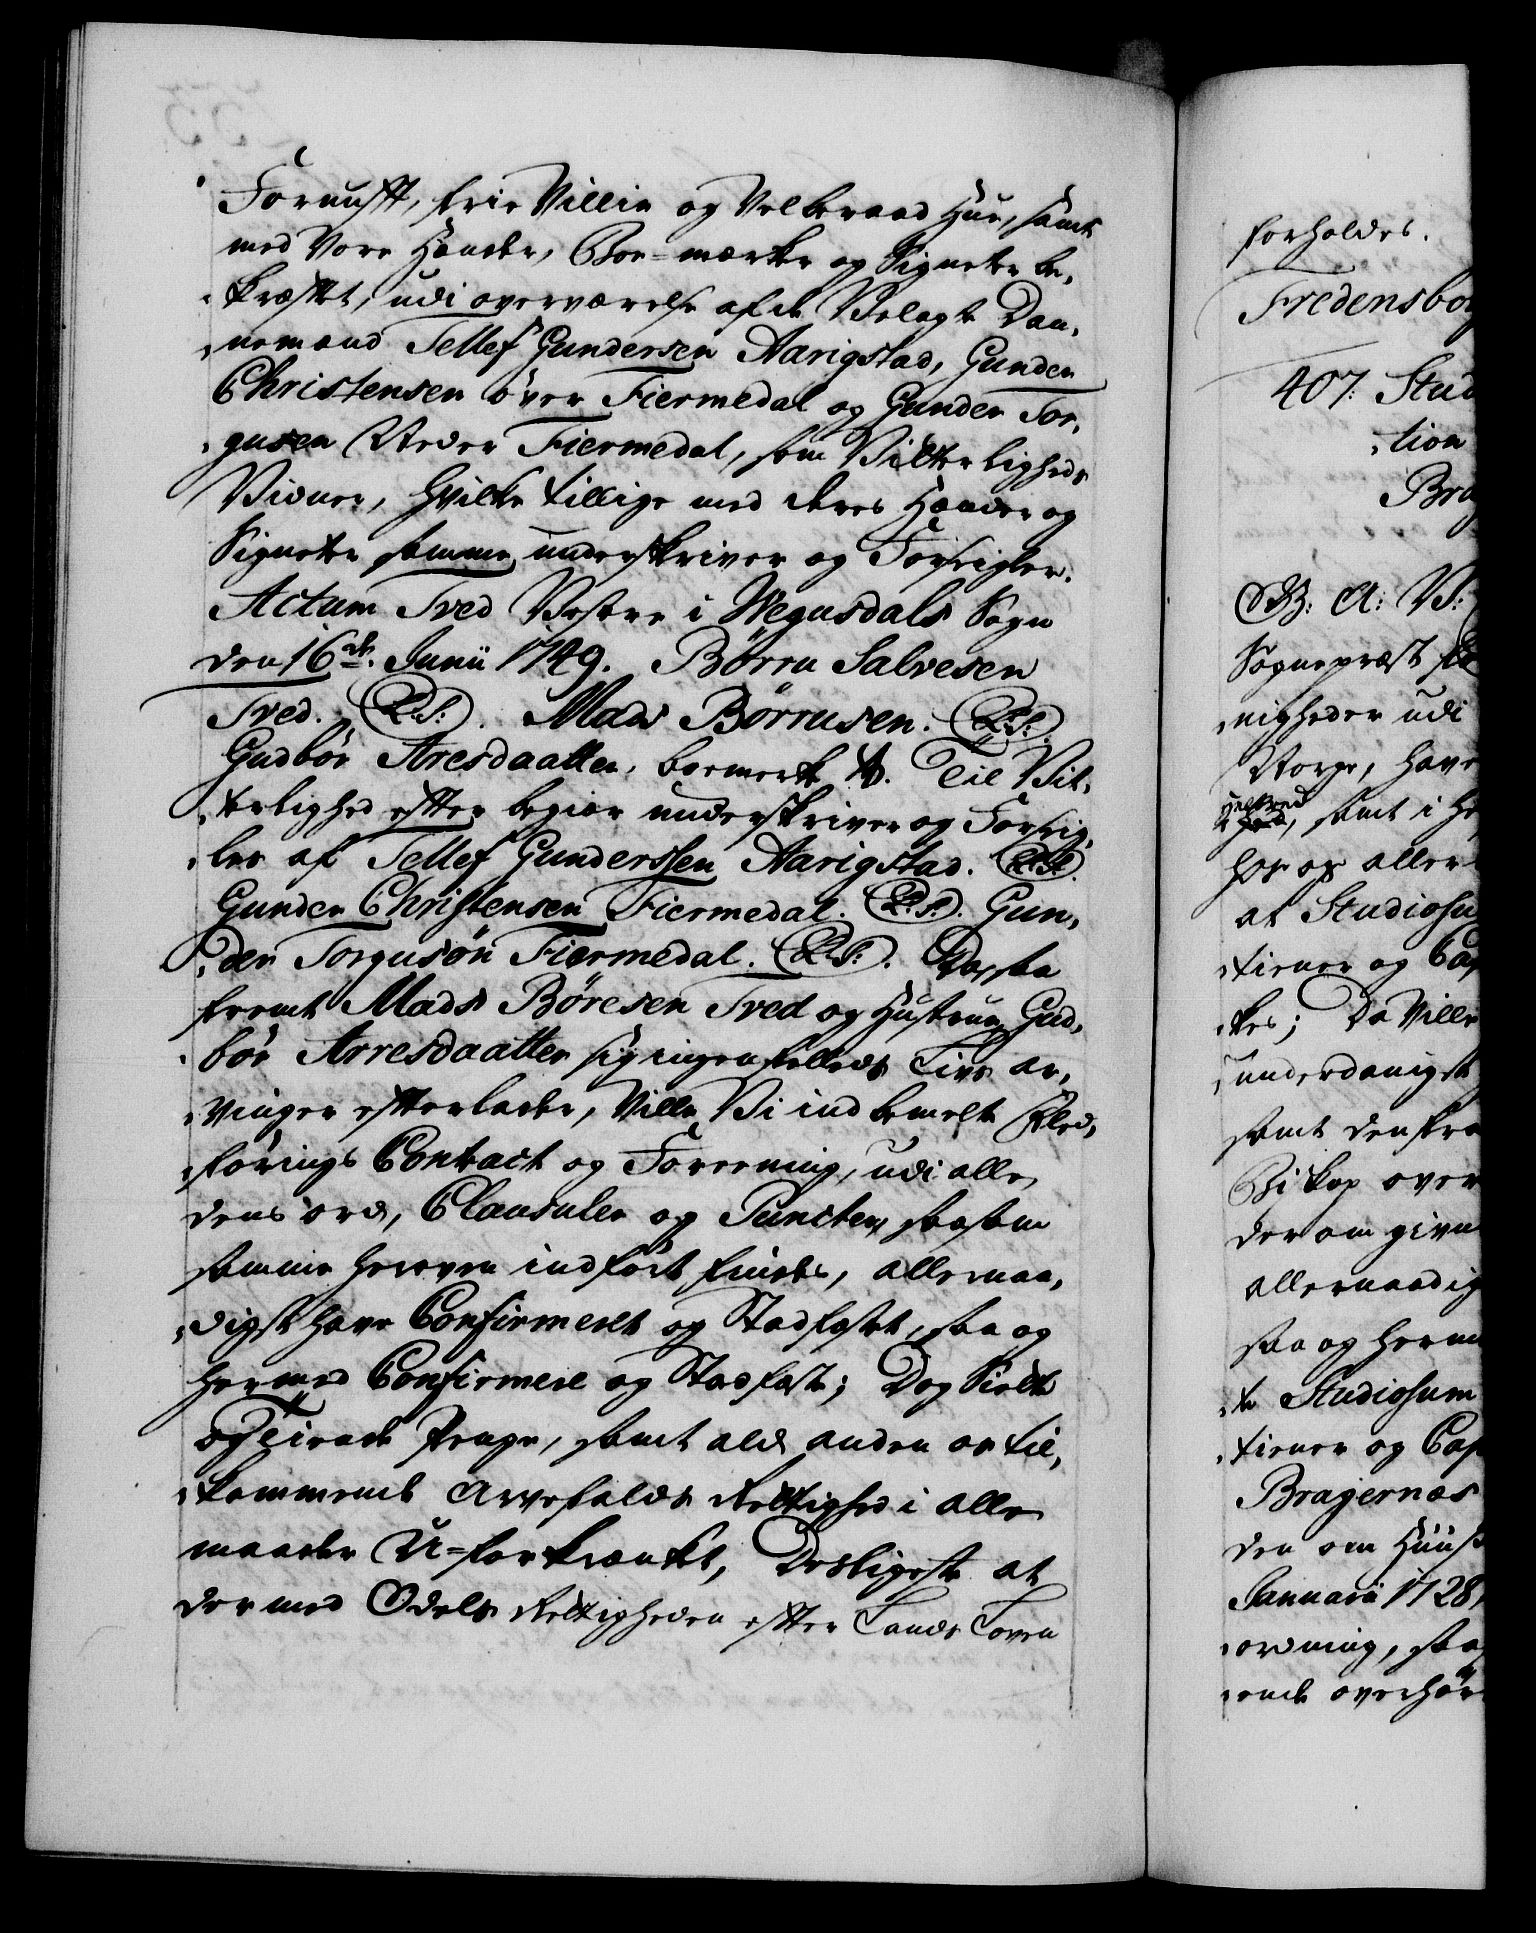 Fornuft, frie Villie og Velberaad Hue, samt
med Vore Hænder, Boe-mærker og Signeter be,
kræftet, udi overværelse af de Velagte Dan,
nemænd Tellef Gundersen Aarigstad, Gunder
Christensen över Fiermedal og Gunder Tor,
gusen Neder Fiermedal, som Vitterligheds
Vidner, hvilke tillige med deres Hænder og
Signeter samme underskriver og Forseigler.
Actum Tved Vestre i Wegusdals Sogn
den 16de. Junii 1749. Börru Salvesen
Tved. (L.S.). Mads Börrusen. (L.S.).
Gudbör Aresdaatter, boemerke A. Til Vit,
terlighed efter begiær underskriver og Forseig,
les af Tellef Gunderssen Aarigstad. (L.S.).
Gunder Christensen Fiermedal. (L.S.). Gun,
der Torgusön Fiermedal. (L.S.). Da, saa
fremt Mads Böresen Tved og Hustrue Gud,
bör Arresdaatter sig ingen felleds Livs ar,
vinger efterlader, Ville Vi ind bemelte Fled,
förings Contract og Foreening, udi alle
dens ord, Clausuler og Puncter, saasom
samme herovren indfört findes, allernaa,
digst have Confirmeret og Stadfæstet, saa og
hermed Confirmere og Stadfæste; Dog Siette
og Tiende Penge, samt ald anden os til,
kommende Arvefalds Rettighed i alle
maader U-forkrænket, Desligeste at
der med Odels Rettigheden efter Lands Loven
forholdes.
Fredensbor
407. Stud
tion
Bra
G: A: V:
Sognepræst
nigheder udi
Norge, have
Helbred, samt i H
hos os aller
at Studiosu
tiener og Cap
kes; Da Ville
underdanigst
samt den fra
Biskop over
der om given
allernaadig
saa og herm
te Studiosum
tiener og Cap
Bragernæs
den om Huus
Januarii 1728,
ordning, saa
ende overhör